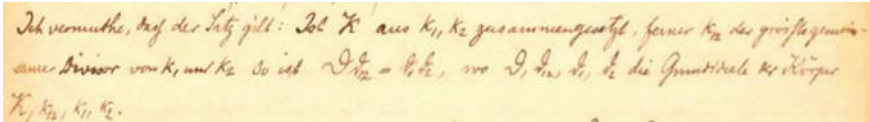 Ich vermuthe, daß der Satz gilt: Ist K aus k₁, k₂ zusammengesetzt, ferner k₁₂ der größte gemein-
same Divisor von k₁ und k₂ so ist 𝔇𝔡₁₂ = 𝔡₁𝔡₂, wo 𝔇, 𝔡₁₂, 𝔡₁, 𝔡₂ die Grundideale der Körper
K, k₁₂, k₁, k₂.